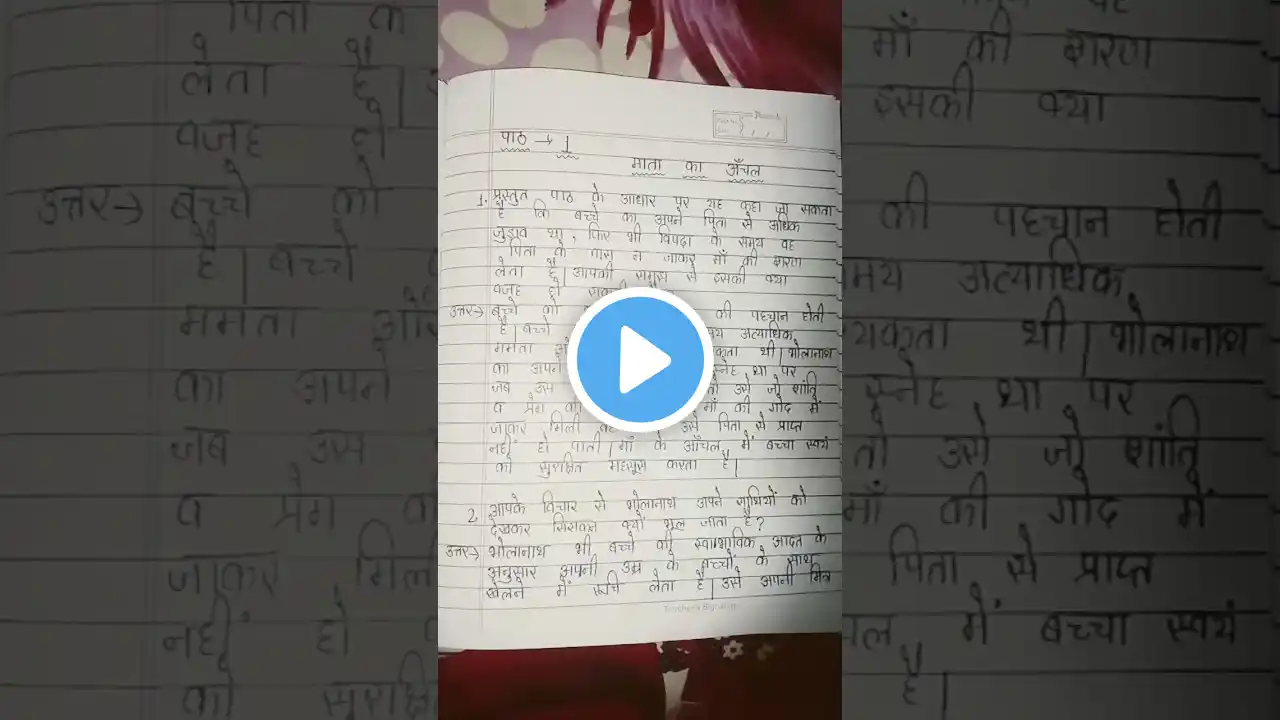 पाठ → 1
माता का अँचल
1. प्रस्तुत पाठ के आधार पर यह कहा जा सकता
है कि बच्चे का अपने पिता से अधिक
जुड़ाव था, फिर भी विपदा के समय वह
पिता के पास न जाकर माँ की शरण
लेता है। आपकी समझ से इसकी क्या
वजह हो
उत्तर→ बच्चे को की पहचान होती
है। बच्चे अत्याधिक
ममता थी। भोलानाथ
का अपने स्नेह था पर
जब उस तो उसे जो शांति
व प्रेम माँ की गोद में
जाकर मिली उसे पिता से प्राप्त
नहीं हो पाती। माँ के आँचल में बच्चा स्वयं
को सुरक्षित महसूस करता है।
2. आपके विचार से भोलानाथ अपने साथियों को
देखकर सिसकना क्यों भूल जाता है?
उत्तर→ भोलानाथ भी बच्चे की स्वाभाविक आदत के
अनुसार अपनी उम्र के बच्चों के साथ
खेलने में रूचि लेता है। उसे अपनी मित्र
Teacher's Signature